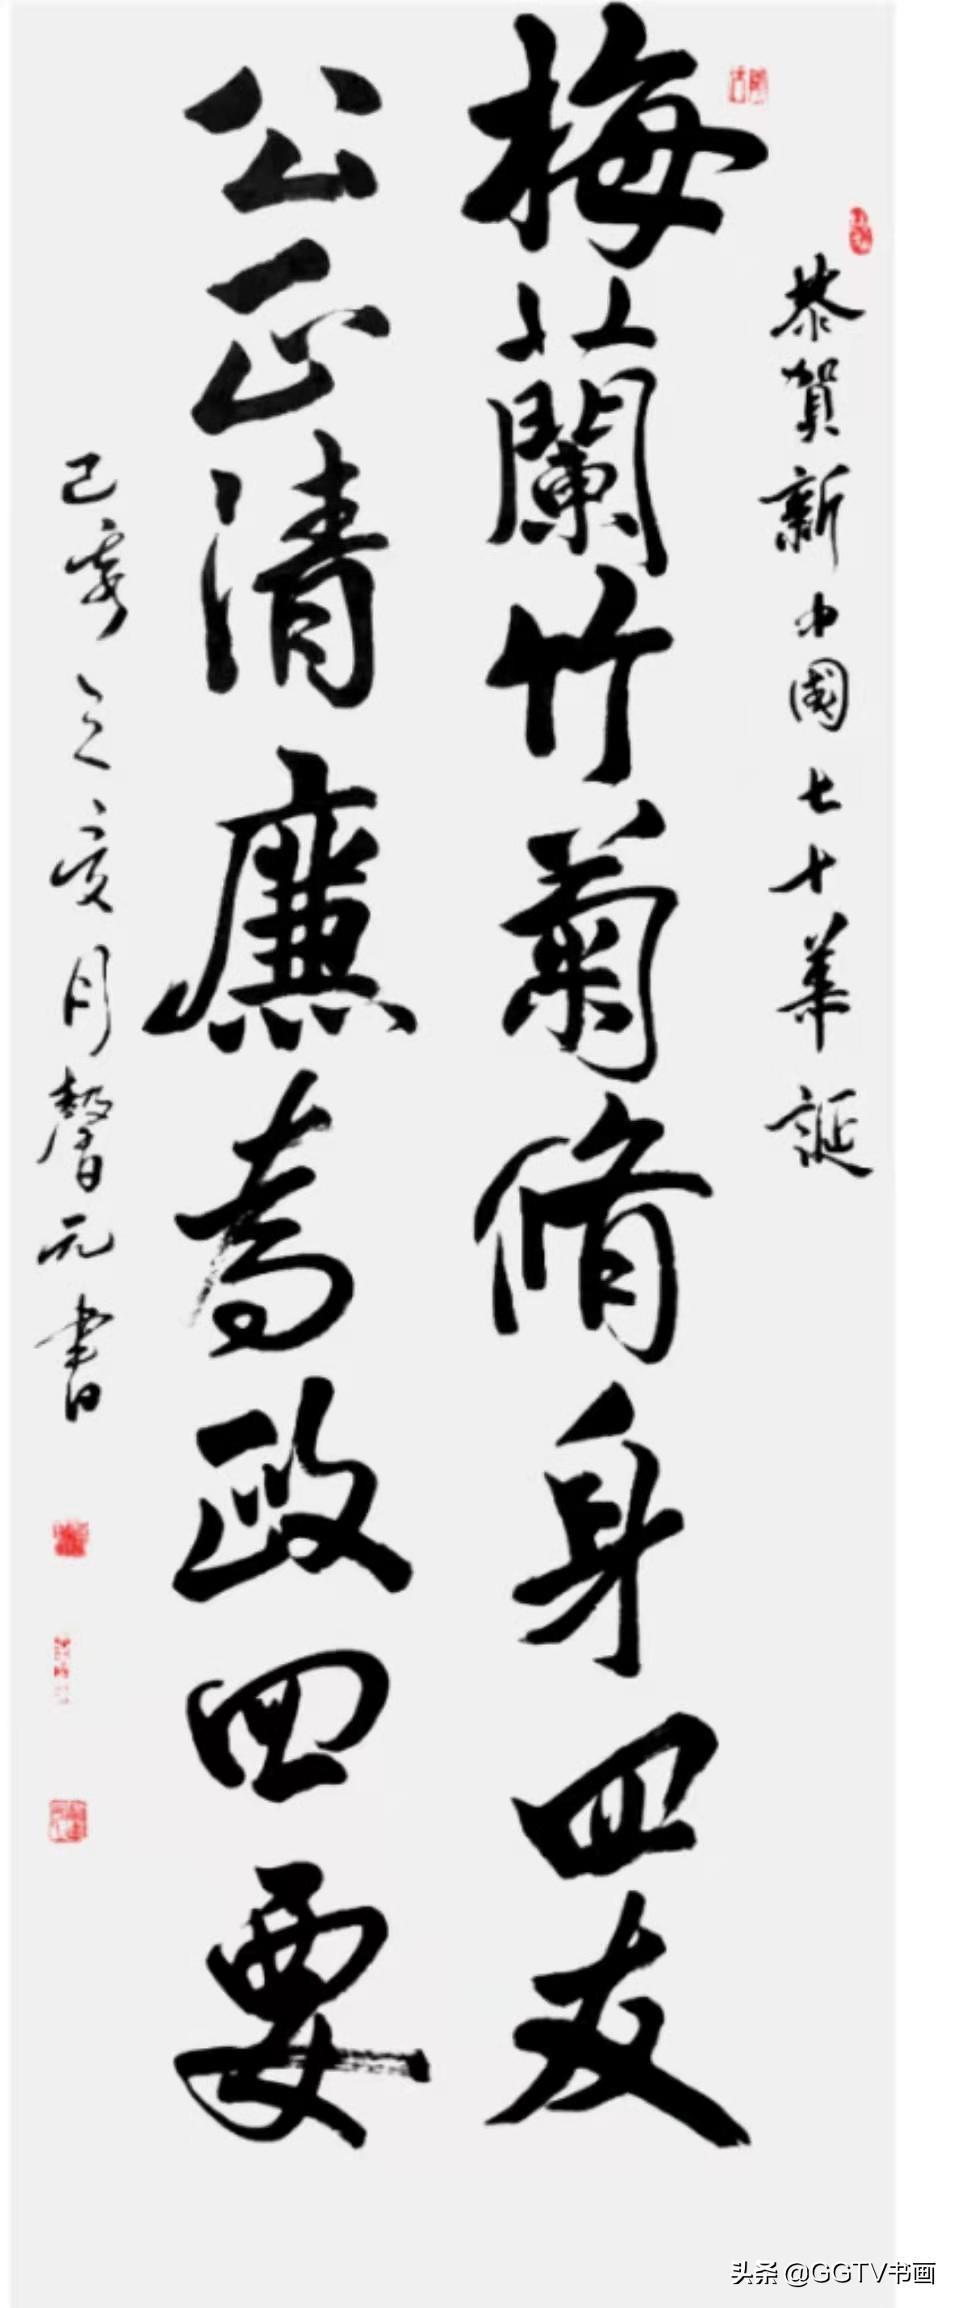 恭賀新中國七十華誕
梅蘭竹菊脩身四友
公正清廉為政四要
己亥之亥月馨元書
头条 @GGTV书画